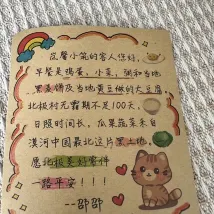 花馨小筑的客人你好,
早餐是鸡蛋,小菜,粥和当地
黑麦饼及当地黄豆做的大豆腐。
北极村无霜期不足100天,
日照时间长,瓜果蔬菜来自
漠河中国最北这片黑土地。
愿北极星好事件
一路平安!!!
--邵邵